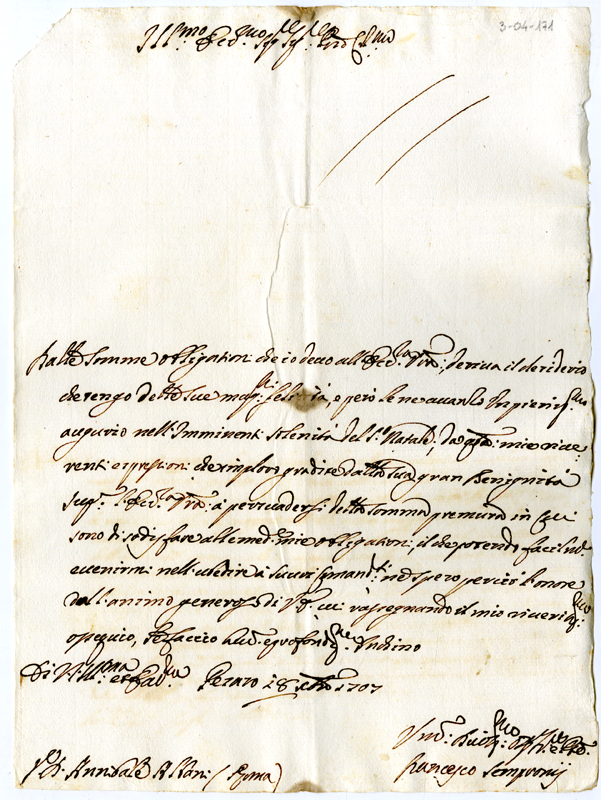 3-04-171
Ill.mo et Ecc.mo Sig.re Sig.re Pro Col.mo
Dalle somme obligationi che io devo all'Ecc.za Vra, deriva il desiderio
che tengo delle sue mag.ri felicità, e però le ne avanzo un pieniss.mo
augurio nell'imminenti solenità del S.o Natale, da q.ste mie rive
renti espressioni che imploro gradite dalla sua gran benignità
sup.co l'Ecc.za Vra à persuadersi della somma premura in cui
sono di sodisfare alle med.e mie obligationi, il che potendo
evenirmi nell'ubedire à suoi comand.ti ne spero perciò l'honore
dall'animo generoso di V.E. cui rassegnando il mio riverit.mo
ossequio, le faccio hum.e profondiss.mo inchino
Di V. Ill.ma et Ecc.za Pesaro 18 Xbre 1707
Hum.o Devot.mo et
S.r D. Annibale Albani (Roma)
Francesco Sempronij